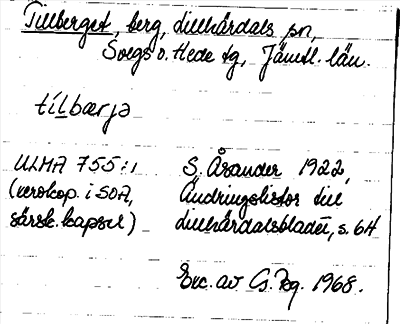 Tillberget, berg, Lillhärdals sn,
Svegs o. Hede tg, Jämtl. län.
tilbærja
ULMA 755:1 S. Åsander 1922,
(xerokop. i SOA, Ändringslistor till
särsk. kapsel) Lillhärdalsbladet, s. 64
Exc. av G. 1968.